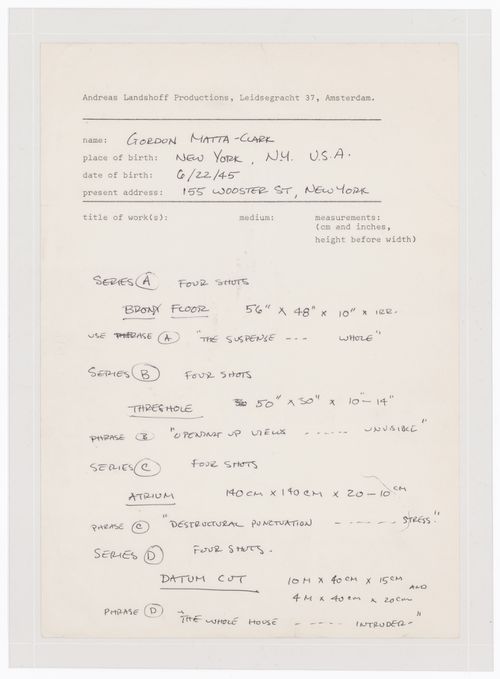 Andreas Landshoff Productions, Leidsegracht 37, Amsterdam.
name: GORDON MATTA-CLARK
place of birth: NEW YORK, N.Y. U.S.A.
date of birth: 6/22/45
present address: 155 WOOSTER ST, NEW YORK
title of work(s): medium: measurements:
(cm and inches,
height before width)
SERIES A FOUR SHOTS
BRONX FLOOR 56" X 48" X 10" X IRR.
USE PHRASE A "THE SUSPENSE --- WHOLE"
SERIES B FOUR SHOTS
THRESHOLE 50" X 30" X 10-14"
PHRASE B "OPENING UP VIEWS ----- UNVISIBLE"
SERIES C FOUR SHOTS
ATRIUM 140CM X 140CM X 20-10 CM
PHRASE C "DESTRUCTURAL PUNCTUATION ----- STRESS."
SERIES D FOUR SHOTS.
DATUM CUT 10M X 40CM X 15CM AND
4M X 40CM X 20CM
PHRASE D "THE WHOLE HOUSE ----- INTRUDER-"